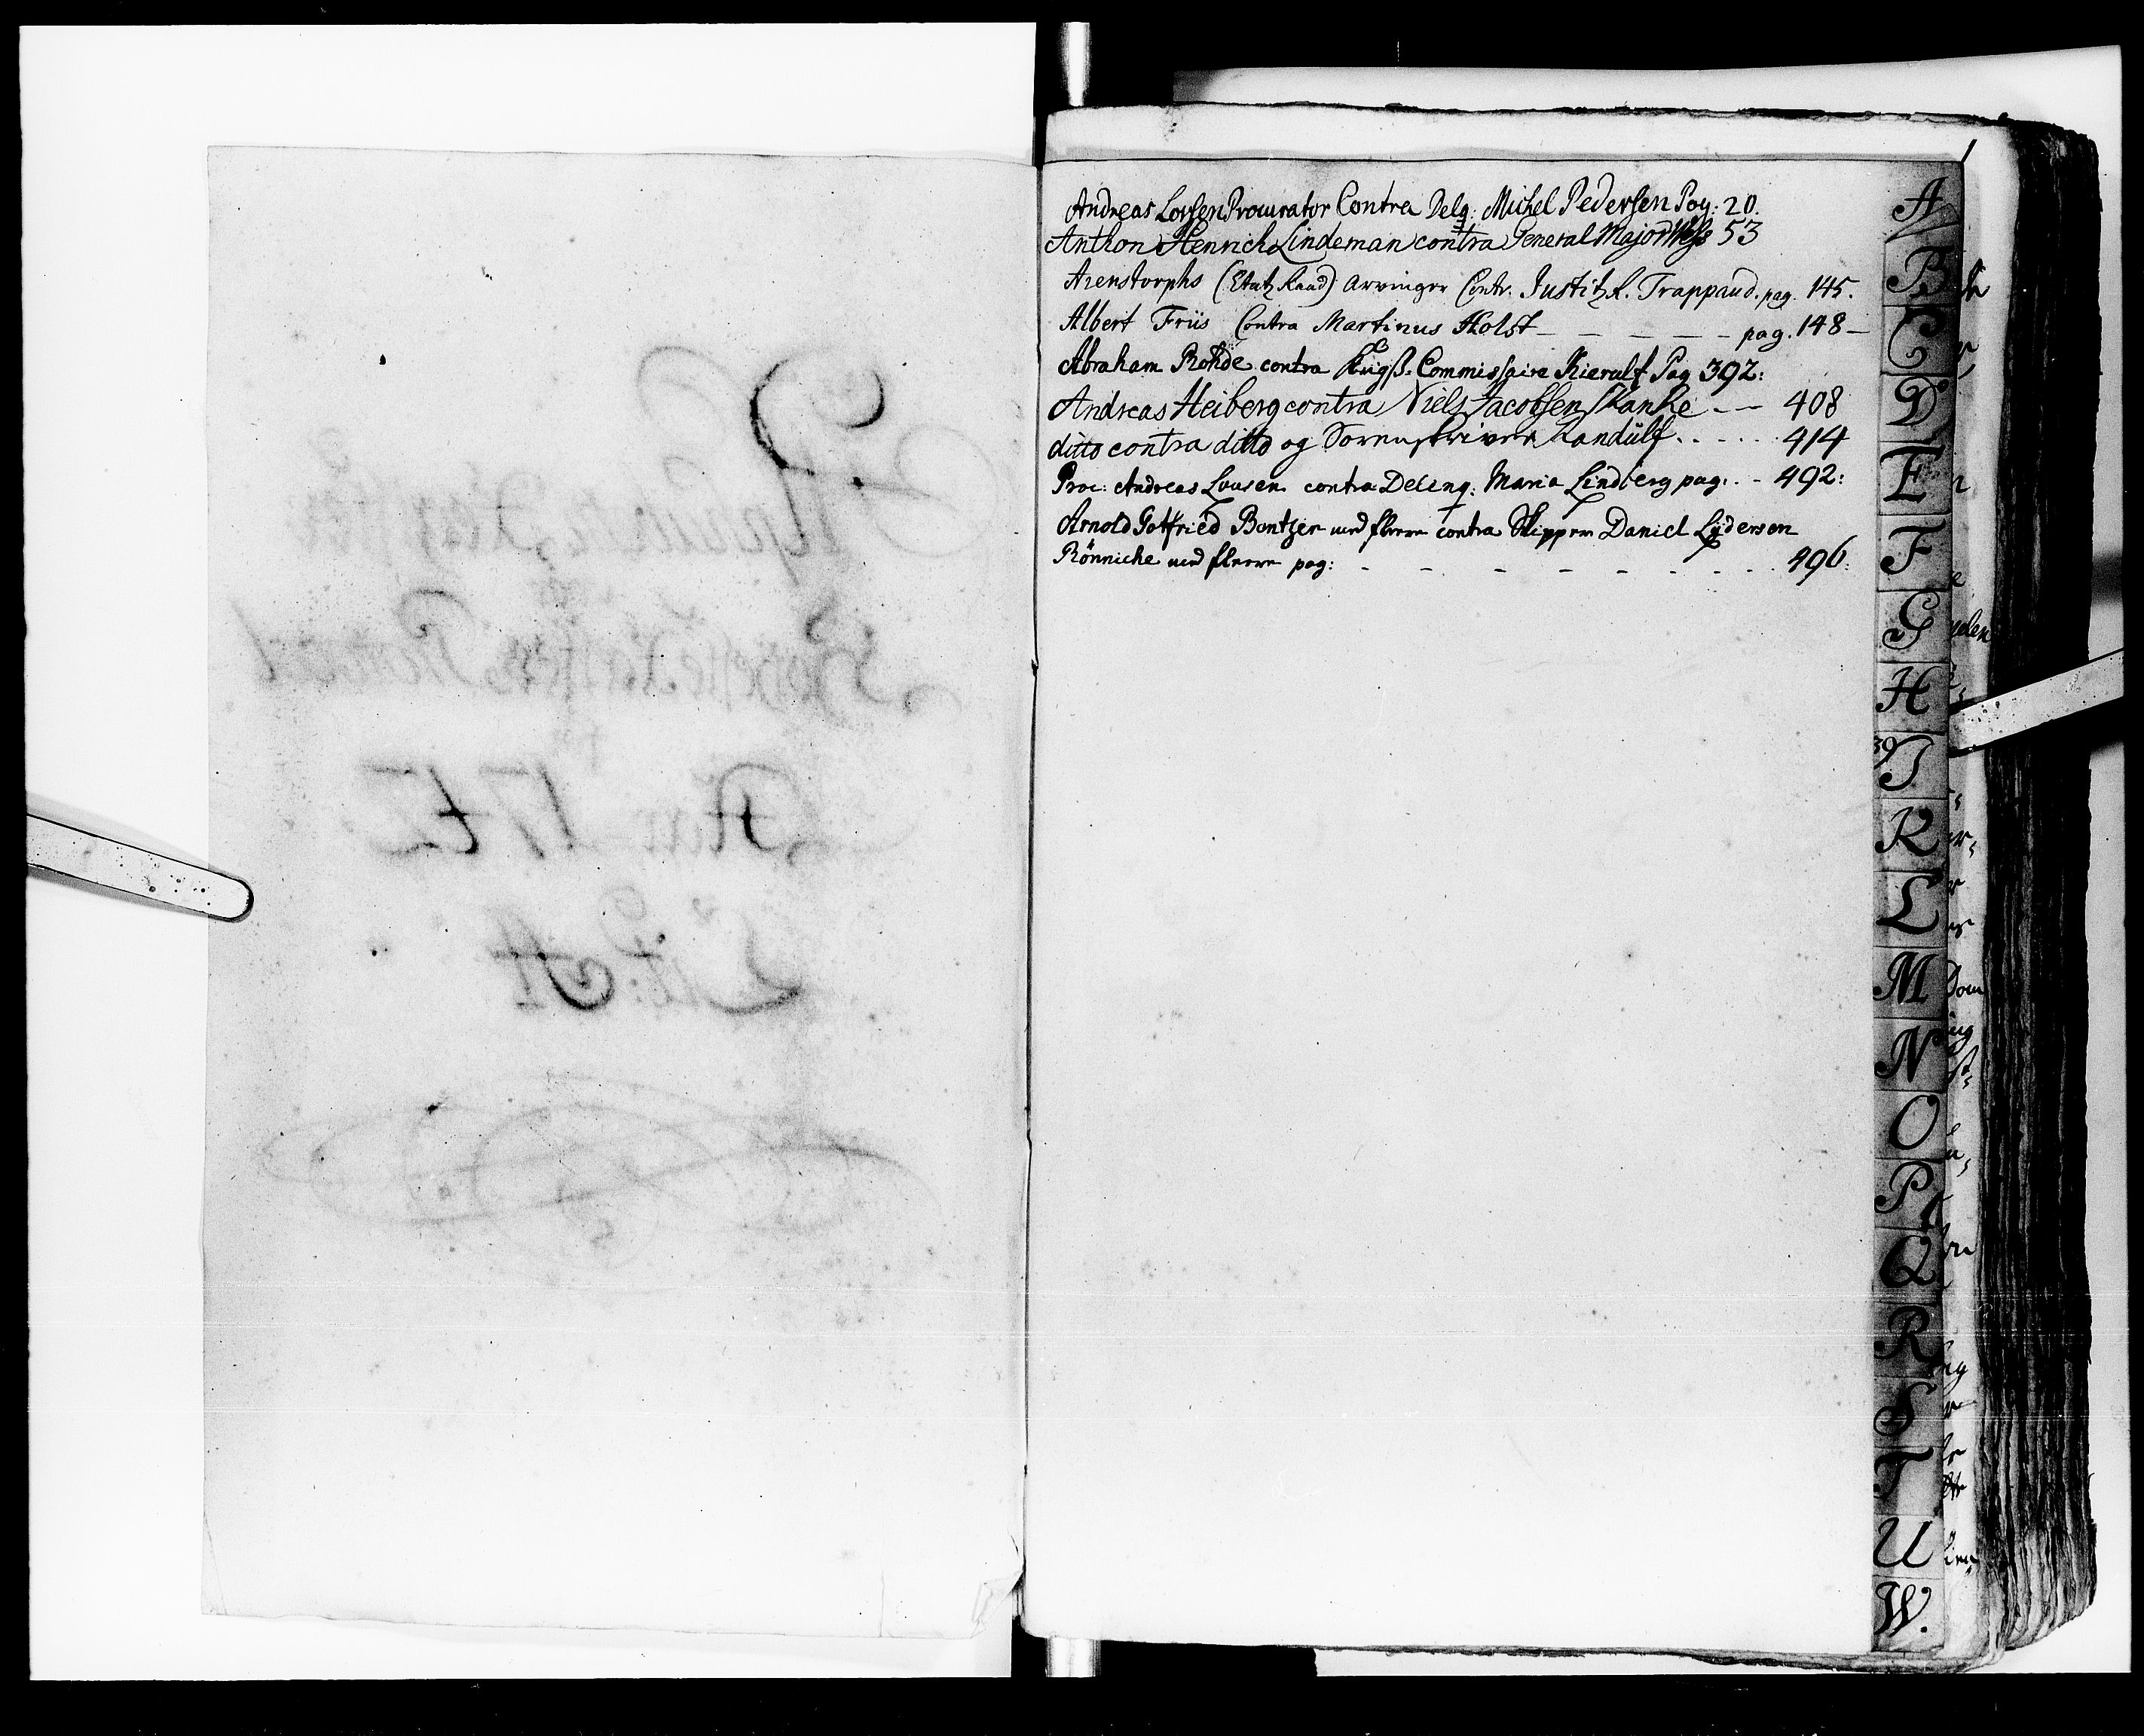 1
Andreas Loysen Procurator Contra Delq: Michel Pedersen Pag: 20.
Anthon Henrich Lindeman contra General Major 53
Arenstorphs (Etatz Raad) Arvinger Contr. Justitz R. Trappaud. pag. 145.
Albert Friis Contra Martinus Holst - - - - pag. 148 -
Abraham Rohde contra Krigß. Commissaire Kierulf Pag 392:
Andreas Heiberg contra Niels Jacobsen Skanke - - 408
ditto contra ditto og Sorenskriver Randülf . . . . . 414
Proc: Andreas Lousen contra Delinq: Maria Lindberg pag: . - 492:
Arnold Gotfried Bontzer med fleere contra Skipper Daniel Lydersen
Rönniche med fleere pag: - - - - - - . . . 496:
A
B
C
D
E
F
G
H
39
I
K
L
M
N
O
P
Q
R
S
T
U
W.